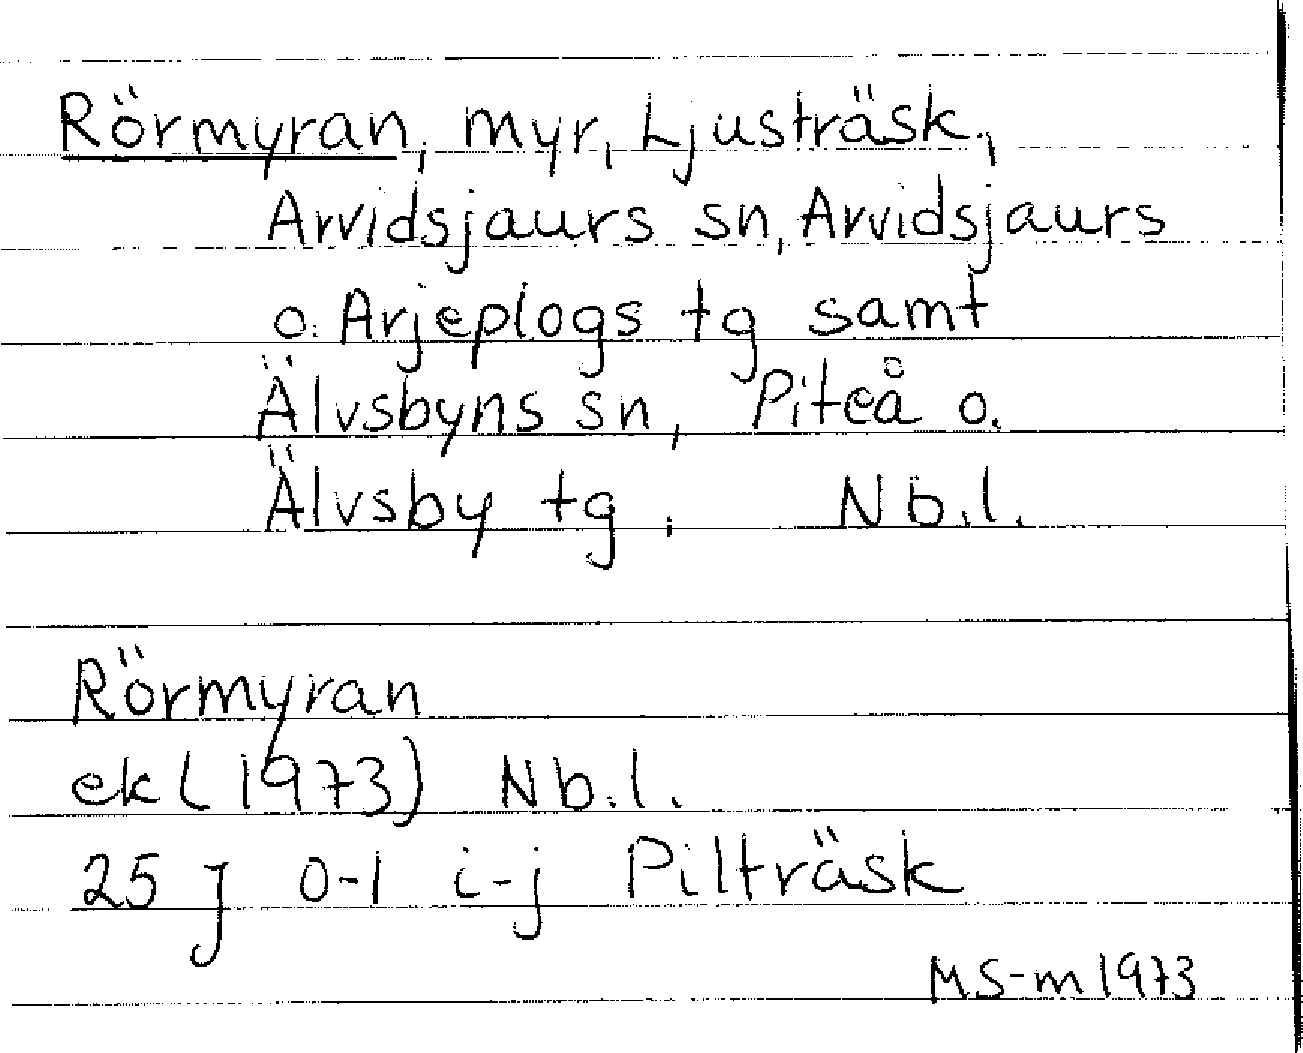 Rörmyran, myr, Ljusträsk.,
Arvidsjaurs sn, Arvidsjaurs
o. Arjeplogs tg samt
Älvsbyns sn, Piteå o.
Älvsby tg. Nb.l.
Rörmyran
ek (1973) Nb.l.
25 J 0-1 i-j Pilträsk
MS-m 1973